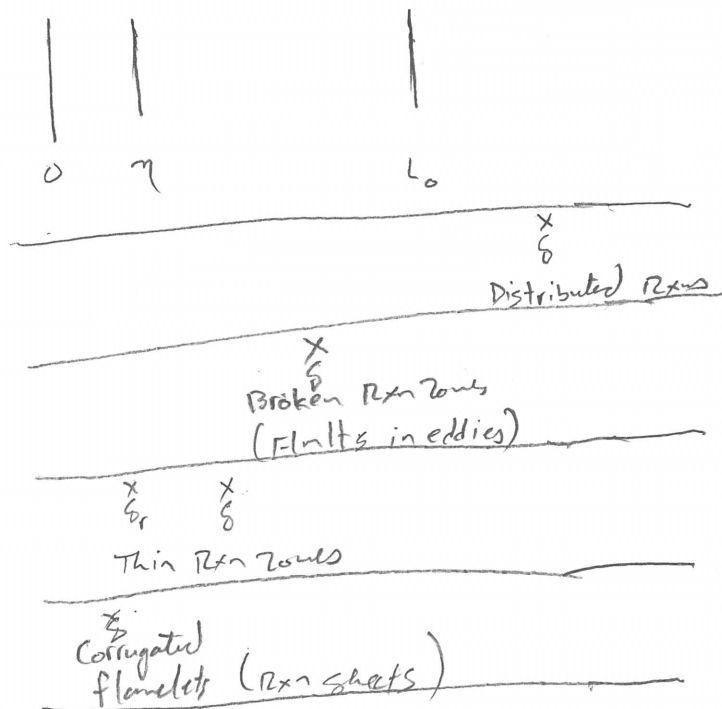 0 η L₀
x
δ
Distributed Rxns
x
δ
Broken Rxn Zones
(Flmlts in eddies)
x x
δᵣ δ
Thin Rxn Zones
x
δ
Corrugated
flamelets (Rxn sheets)